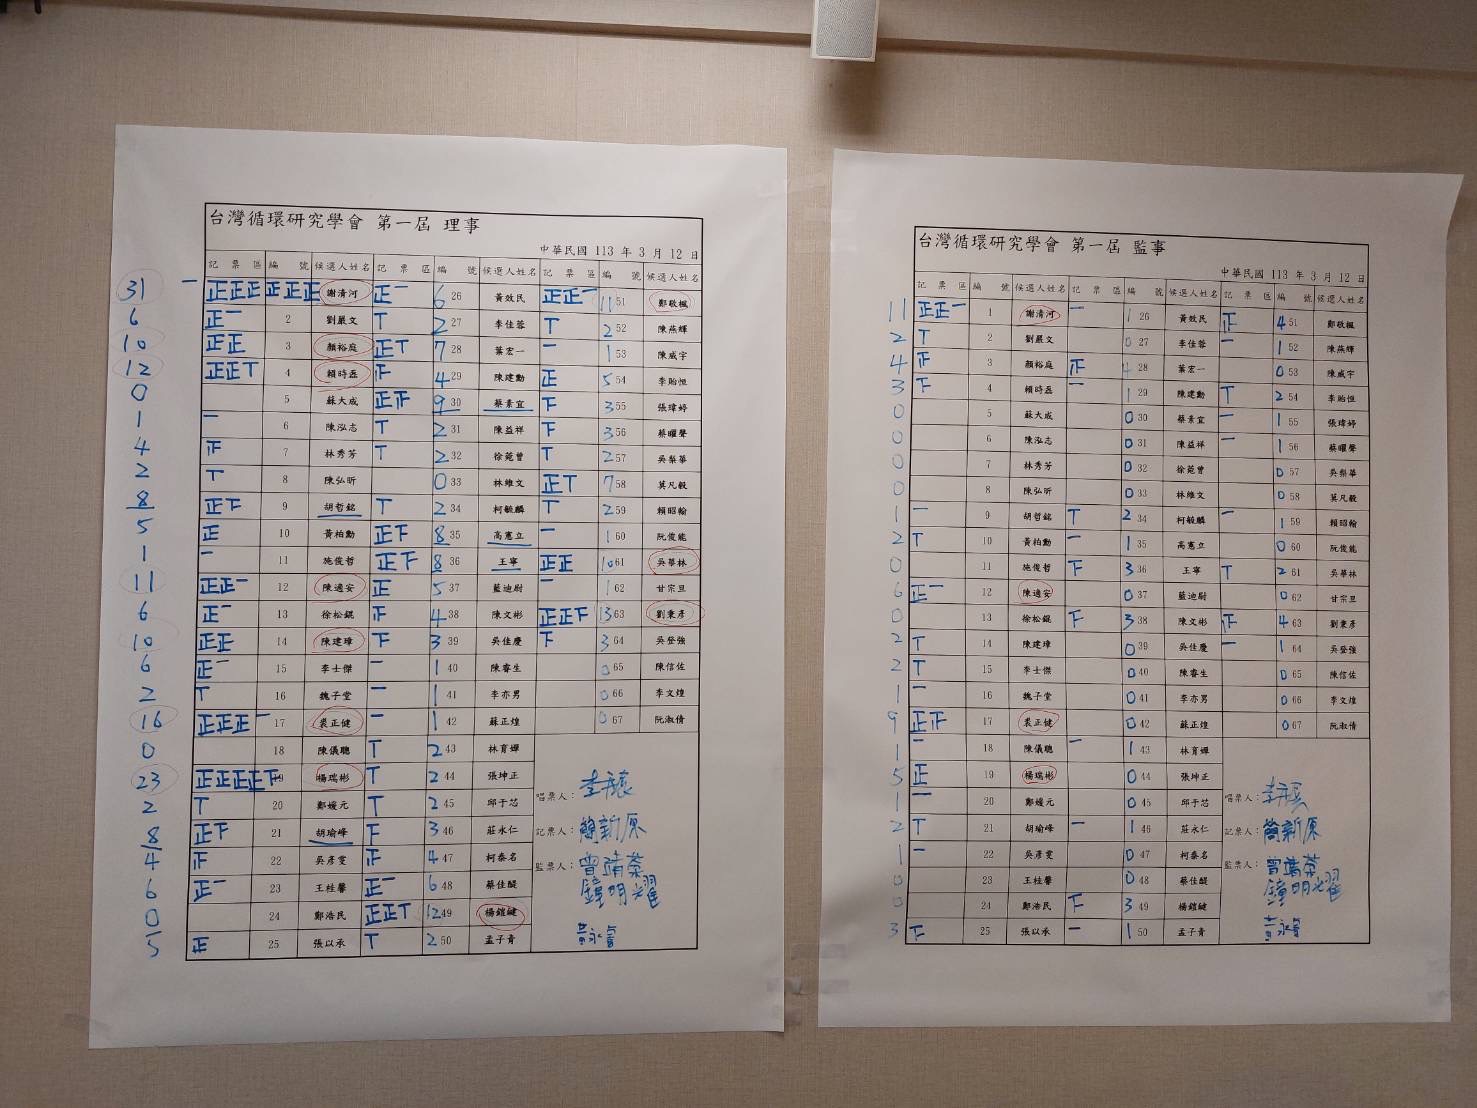 台灣循環研究學會 第一屆 理事
中華民國 113 年 3 月 12 日
記票區 編號 候選人姓名 記票區 編號 候選人姓名 記票區 編號 候選人姓名
31 一 正正正正正正 謝清河 正一 6 26 黃效民 正正一 11 51 鄭敬楓
6 正一 2 劉嚴文 T 2 27 李佳蓉 T 2 52 陳燕輝
10 正正 3 顏裕庭 正T 7 28 葉宏一 一 1 53 陳威宇
12 正正T 4 賴時磊 4 29 陳建勳 正 5 54 李貽恒
0 5 蘇大成 正 9 30 蔡素宜 3 55 張瑋婷
1 一 6 陳泓志 T 2 31 陳益祥 3 56 蔡曜聲
4 7 林秀芳 T 2 32 徐莞曾 T 2 57 吳梨華
2 T 8 陳弘昕 0 33 林維文 正T 7 58 莫凡毅
8 正 9 胡哲銘 T 2 34 柯毓麟 T 2 59 賴昭翰
5 正 10 黃柏勳 正 8 35 高憲立 一 1 60 阮俊能
1 一 11 施俊哲 正 8 36 王寧 正正 10 61 吳華林
11 正正一 12 陳適安 正 5 37 藍迪尉 一 1 62 甘宗旦
6 正一 13 徐松錕 4 38 陳文彬 正正 13 63 劉秉彥
10 正正 14 陳建璋 3 39 吳佳慶 3 64 吳登強
6 正一 15 李士傑 一 1 40 陳睿生 0 65 陳信佐
2 T 16 魏子堂 一 1 41 李亦男 0 66 李文煌
16 正正正一 17 裘正健 一 1 42 蘇正煌 0 67 阮淑倩
0 18 陳儀聰 T 2 43 林育嬋
23 正正正正 19 楊瑞彬 T 2 44 張坤正
2 T 20 鄭媛元 T 2 45 邱于芯
8 正 21 胡瑜峰 3 46 莊永仁
4 22 吳彥雯 4 47 柯泰名
6 正一 23 王桂馨 正一 6 48 蔡佳醍
0 24 鄭浩民 正正T 12 49 楊鎧鍵
5 正 25 張以承 T 2 50 孟子青
唱票人：
記票人：簡新原
監票人：曾靖棻
鐘明耀
黃永睿
台灣循環研究學會 第一屆 監事
中華民國 113 年 3 月 12 日
記票區 編號 候選人姓名 記票區 編號 候選人姓名 記票區 編號 候選人姓名
11 正正一 1 謝清河 一 1 26 黃效民 4 51 鄭敬楓
2 T 2 劉嚴文 0 27 李佳蓉 一 1 52 陳燕輝
4 3 顏裕庭 4 28 葉宏一 0 53 陳威宇
3 4 賴時磊 一 1 29 陳建勳 T 2 54 李貽恒
0 5 蘇大成 0 30 蔡素宜 一 1 55 張瑋婷
0 6 陳泓志 0 31 陳益祥 一 1 56 蔡曜聲
0 7 林秀芳 0 32 徐莞曾 0 57 吳梨華
0 8 陳弘昕 0 33 林維文 0 58 莫凡毅
1 一 9 胡哲銘 T 2 34 柯毓麟 一 1 59 賴昭翰
2 T 10 黃柏勳 一 1 35 高憲立 0 60 阮俊能
0 11 施俊哲 3 36 王寧 T 2 61 吳華林
6 正一 12 陳適安 0 37 藍迪尉 0 62 甘宗旦
0 13 徐松錕 3 38 陳文彬 4 63 劉秉彥
2 T 14 陳建璋 0 39 吳佳慶 一 1 64 吳登強
2 T 15 李士傑 0 40 陳睿生 0 65 陳信佐
1 一 16 魏子堂 0 41 李亦男 0 66 李文煌
9 正 17 裘正健 0 42 蘇正煌 0 67 阮淑倩
1 一 18 陳儀聰 一 1 43 林育嬋
5 正 19 楊瑞彬 0 44 張坤正
1 一 20 鄭媛元 0 45 邱于芯
2 T 21 胡瑜峰 一 1 46 莊永仁
1 一 22 吳彥雯 0 47 柯泰名
0 23 王桂馨 0 48 蔡佳醍
0 24 鄭浩民 3 49 楊鎧鍵
3 25 張以承 一 1 50 孟子青
唱票人：
記票人：簡新原
監票人：曾靖棻
鐘明耀
黃永睿